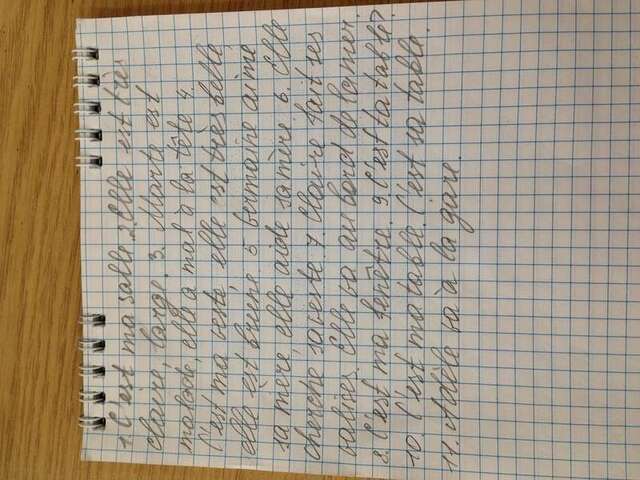 1. C'est ma salle. 2. Elle est très
claire, large. 3. Marte est
malade, ella a mal à la tête 4.
C'est ma veste elle est très belle
elle est brune. 5 Germaine aime
sa mère, elle aide sa mère. 6. Elle
cherche sa veste. 7. Claire fait ses
valises. Elle va au bord de la mer.
8. C'est ma fenêtre. 9 C'est ta table?
10. C'est ma table. C'est sa table.
11. Adèle va à la gare.